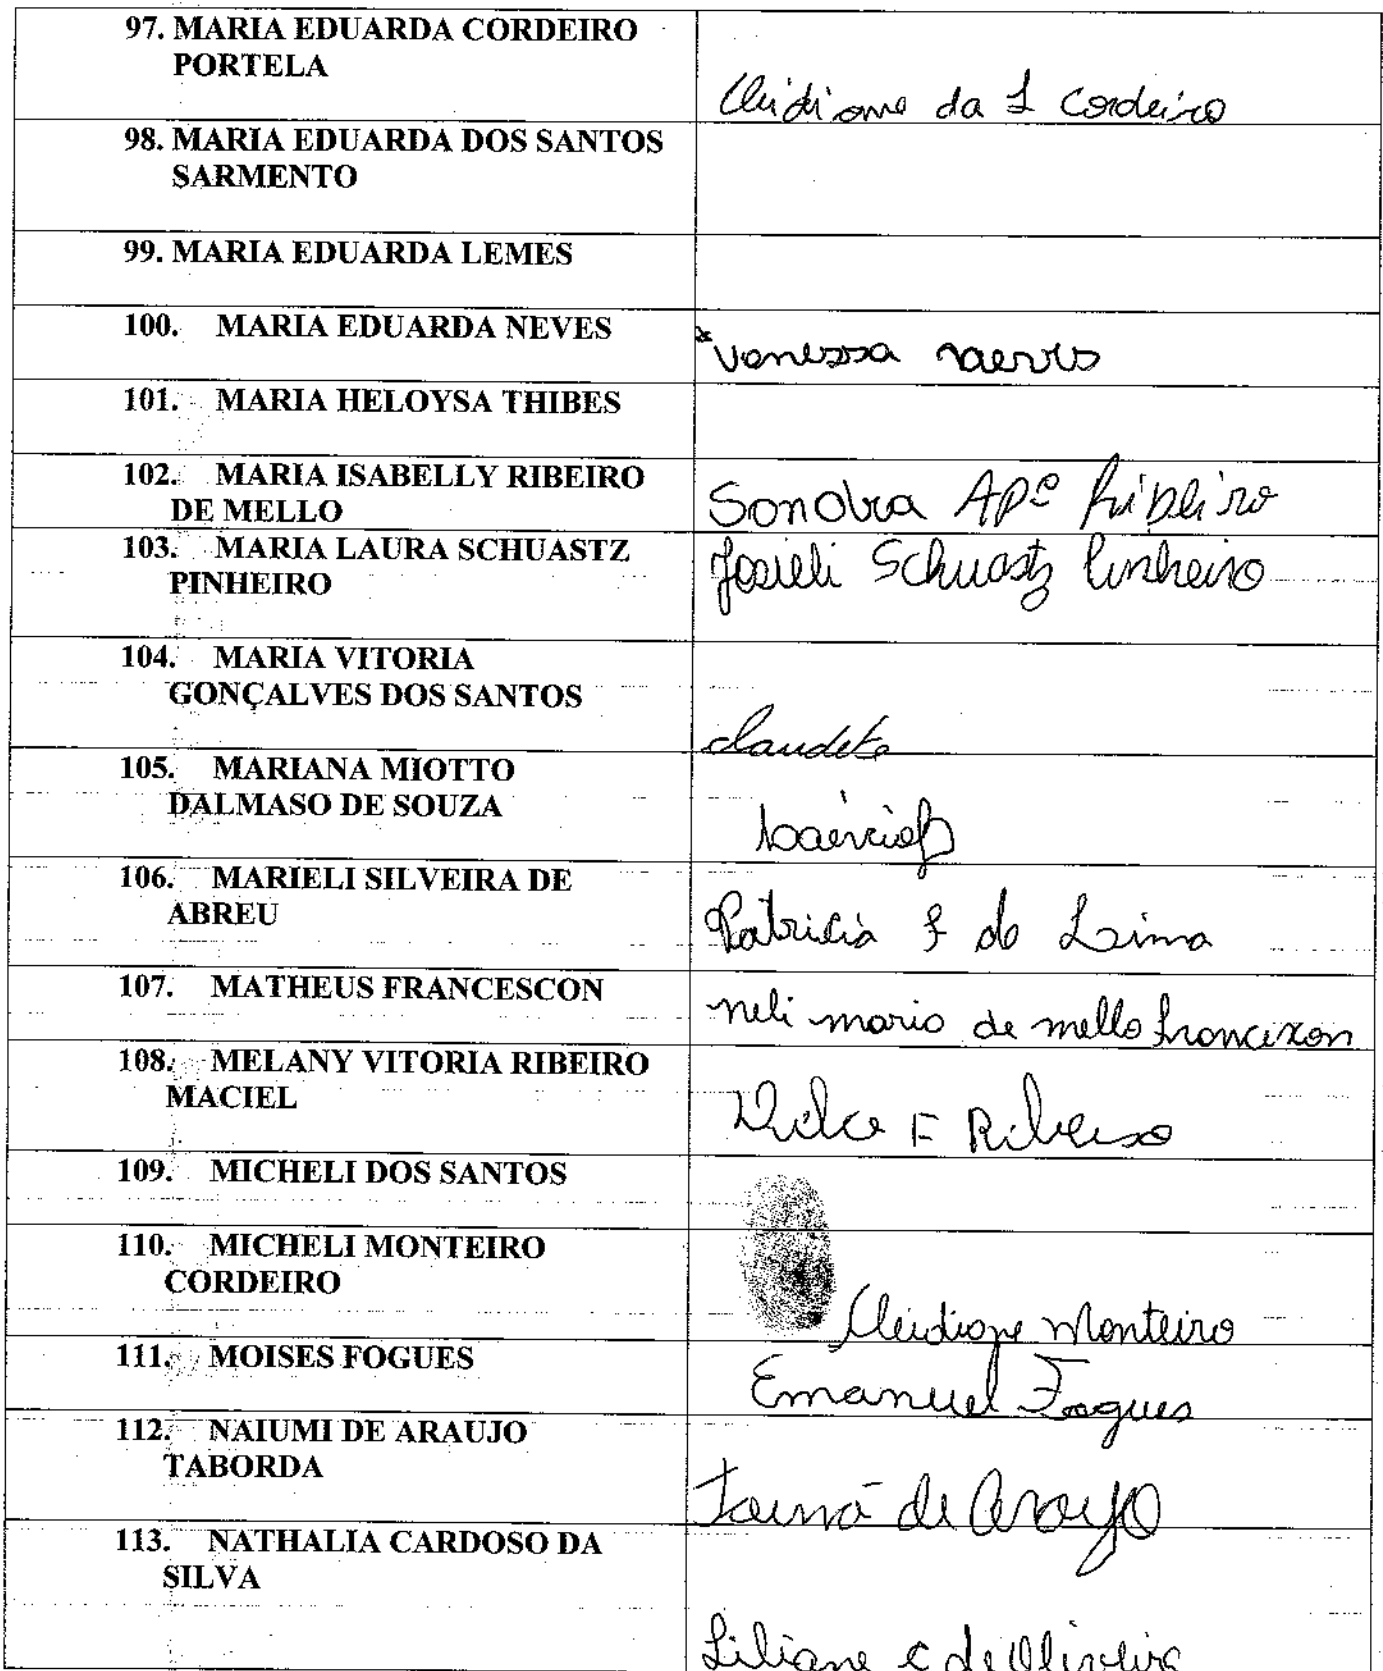 97. MARIA EDUARDA CORDEIRO
PORTELA
da L Cordeiro
98. MARIA EDUARDA DOS SANTOS
SARMENTO
99. MARIA EDUARDA LEMES
100. MARIA EDUARDA NEVES
Vanessa neves
101. MARIA HELOYSA THIBES
102. MARIA ISABELLY RIBEIRO
DE MELLO
Sandra Apª Ribeiro
103. MARIA LAURA SCHUASTZ
PINHEIRO
Josieli Schuastz Pinheiro
104. MARIA VITORIA
GONÇALVES DOS SANTOS
Claudete
105. MARIANA MIOTTO
DALMASO DE SOUZA
106. MARIELI SILVEIRA DE
ABREU
Patricia F de Lima
107. MATHEUS FRANCESCON
neli maria de mello francixon
108. MELANY VITORIA RIBEIRO
MACIEL
F Ribeiro
109. MICHELI DOS SANTOS
110. MICHELI MONTEIRO
CORDEIRO
Cleidione Monteiro
111. MOISES FOGUES
Emanuel Fogues
112. NAIUMI DE ARAUJO
TABORDA
de Araujo
113. NATHALIA CARDOSO DA
SILVA
Liliane C de Oliveira